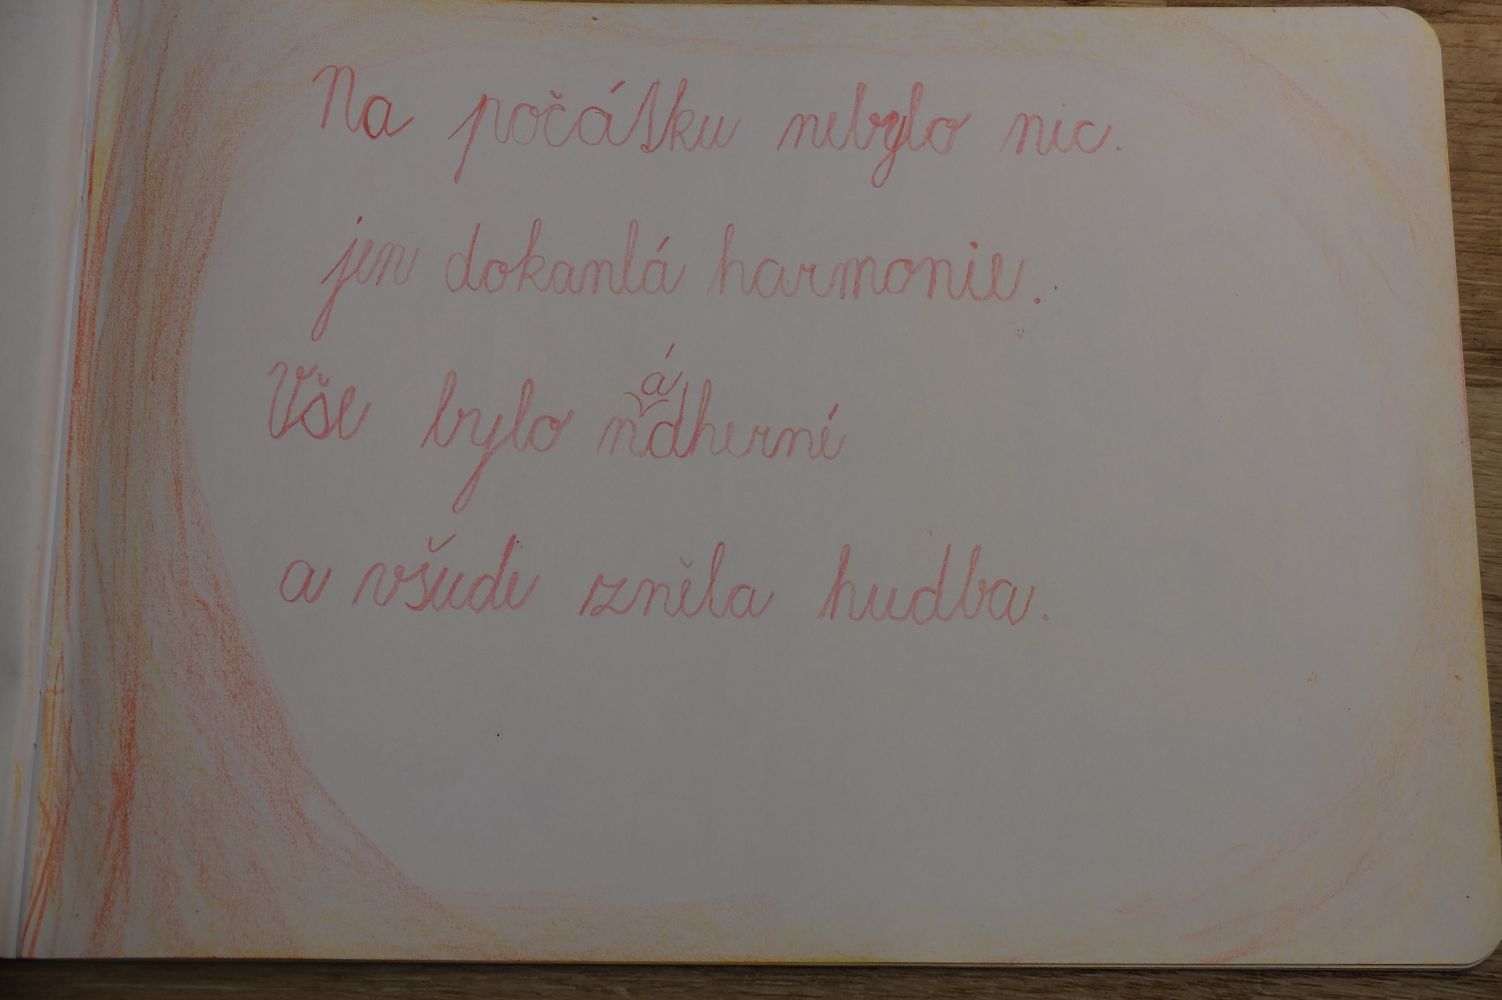 Na počátku nebylo nic.
jen dokanlá harmonie.
Vše bylo nádherné
a všude zněla hudba.